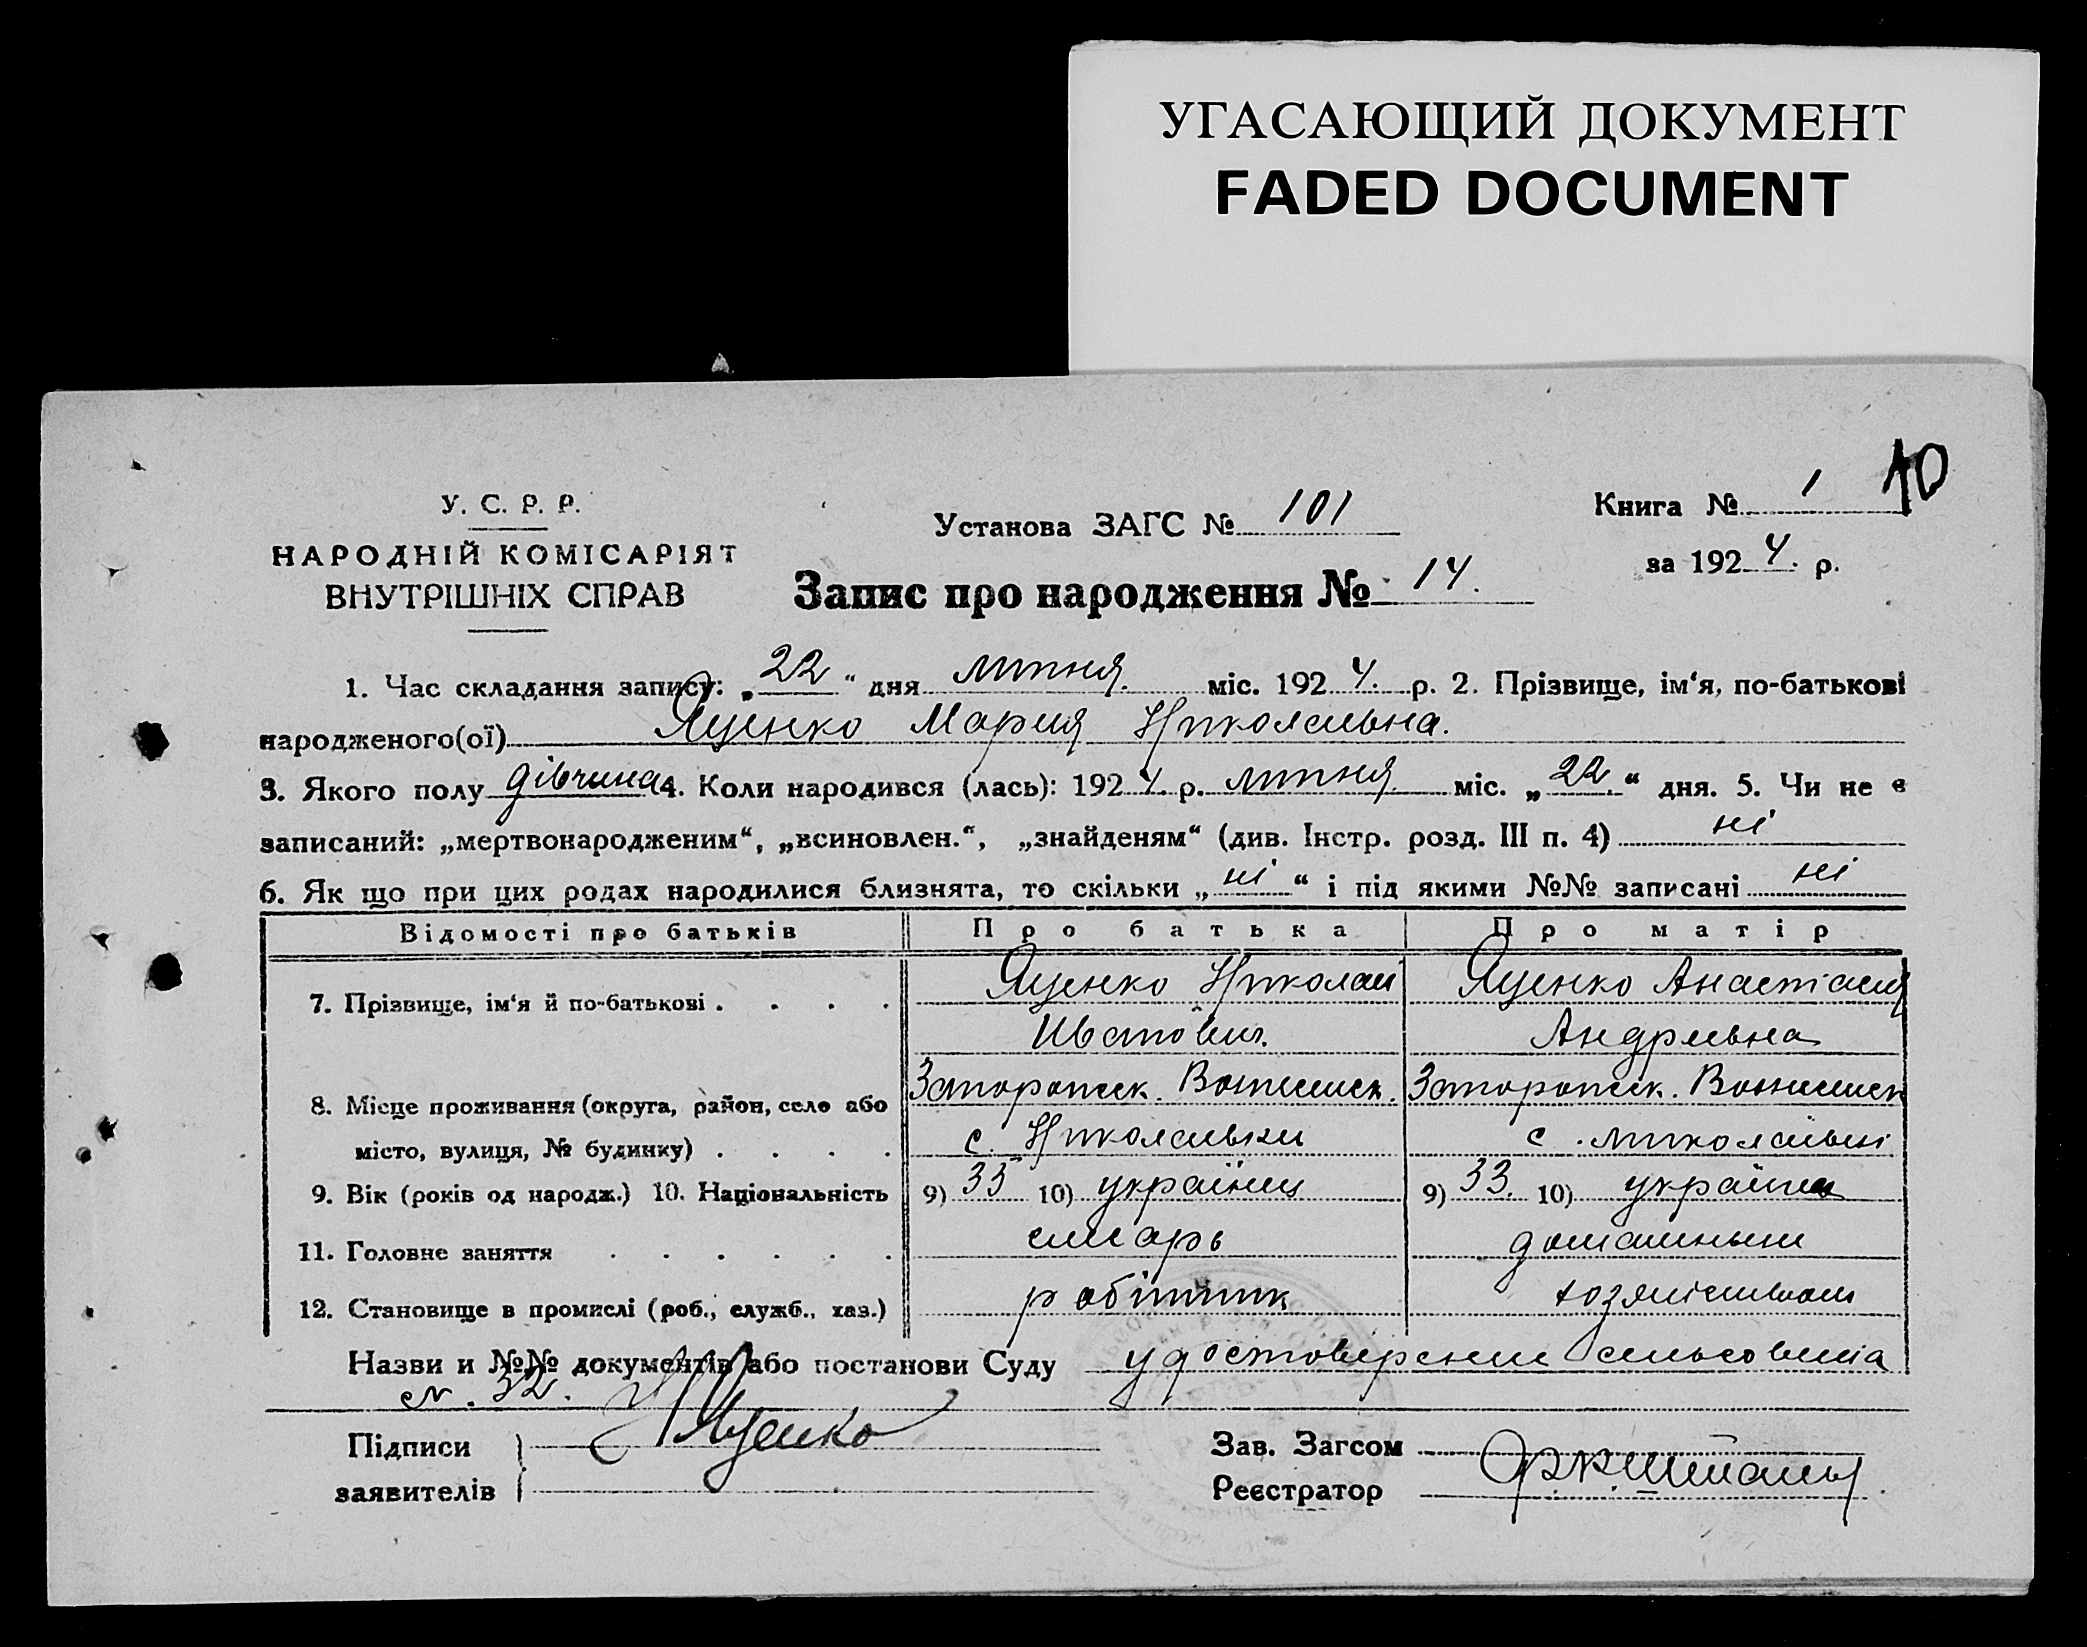 УГАСАЮЩИЙ ДОКУМЕНТ
FADED DOCUMENT
10
У. С. Р. Р.
НАРОДНІЙ КОМІСАРІЯТ
ВНУТРІШНІХ СПРАВ
Установа ЗАГС № 101
Книга № 1
за 1924. р.
Запис про народження № 14.
1. Час складання запису: „22“ дня липня міс. 1924. р. 2. Прізвище, ім‘я, по-батькові
народженого(ої) Яценко Мария Николаивна.
3. Якого полу дівчина 4. Коли народився (лась): 1924 р. липня міс. „22.“ дня. 5. Чи не є
записаний: „мертвонародженим“, „всиновлен.“, „знайденям“ (див. Інстр. розд. III п. 4) ні
6. Як що при цих родах народилися близнята, то скільки „ні“ і під якими №№ записані ні
Відомості про батьків Про батька Про матір
7. Прізвище, ім‘я й по-батькові . . . . Яценко Николай Яценко Анастасия
Иванович. Андриевна
8. Місце проживання (округа, район, село або
місто, вулиця, № будинку) . . . . с. Николаивки с. Миколаівки
9. Вік (років од народж.) 10. Національність 9) 35 10) українец 9) 33. 10) українка
11. Головне заняття . . . . . . слесарь домашным
12. Становище в промислі (роб., служб., хаз.) робітник хозяйством
Назви и №№ документів або постанови Суду удостоверение сельсовита
N. 32.
Підписи
заявителів
Н Яценко
Зав. Загсом
Реєстратор